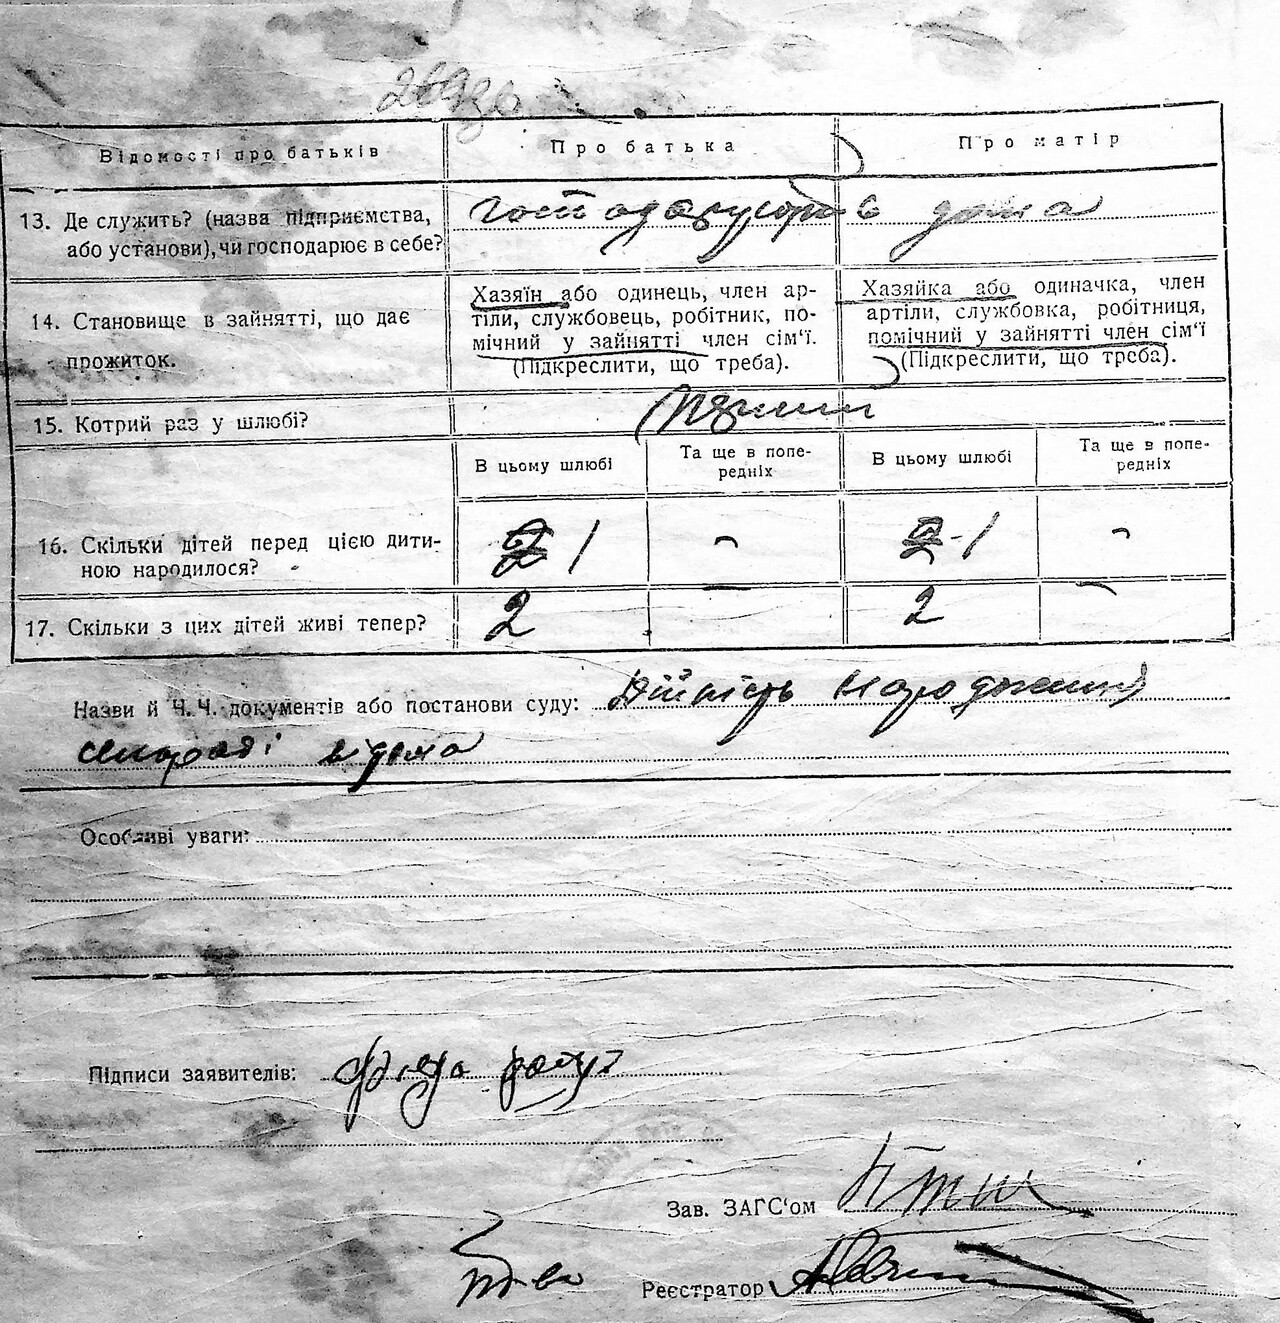 Відомості про батьків
Про батька
Про матір
13. Де служить? (назва підприємства,
або установи), чи господарює в себе?
господарують в дома
14. Становище в зайнятті, що дає
прожиток.
Хазяїн або одинець, член ар-
тілі, службовець, робітник, по-
мічний у зайнятті член сім'ї.
(Підкреслити, що треба).
Хазяйка або одиначка, член
артілі, службовка, робітниця,
помічний у зайнятті член сім'ї
(Підкреслити, що треба).
15. Котрий раз у шлюбі?
В цьому шлюбі
Та ще в попе-
редніх
В цьому шлюбі
Та ще в попе-
редніх
16. Скільки дітей перед цією дити-
ною народилося?
2 1
-
2 - 1
-
17. Скільки з цих дітей живі тепер?
2
-
2
-
Назви й Ч.Ч. документів або постанови суду: Дійсність народження
сільраді відома
Особливі уваги:
Підписи заявителів:
Зав. ЗАГС'ом
Реєстратор